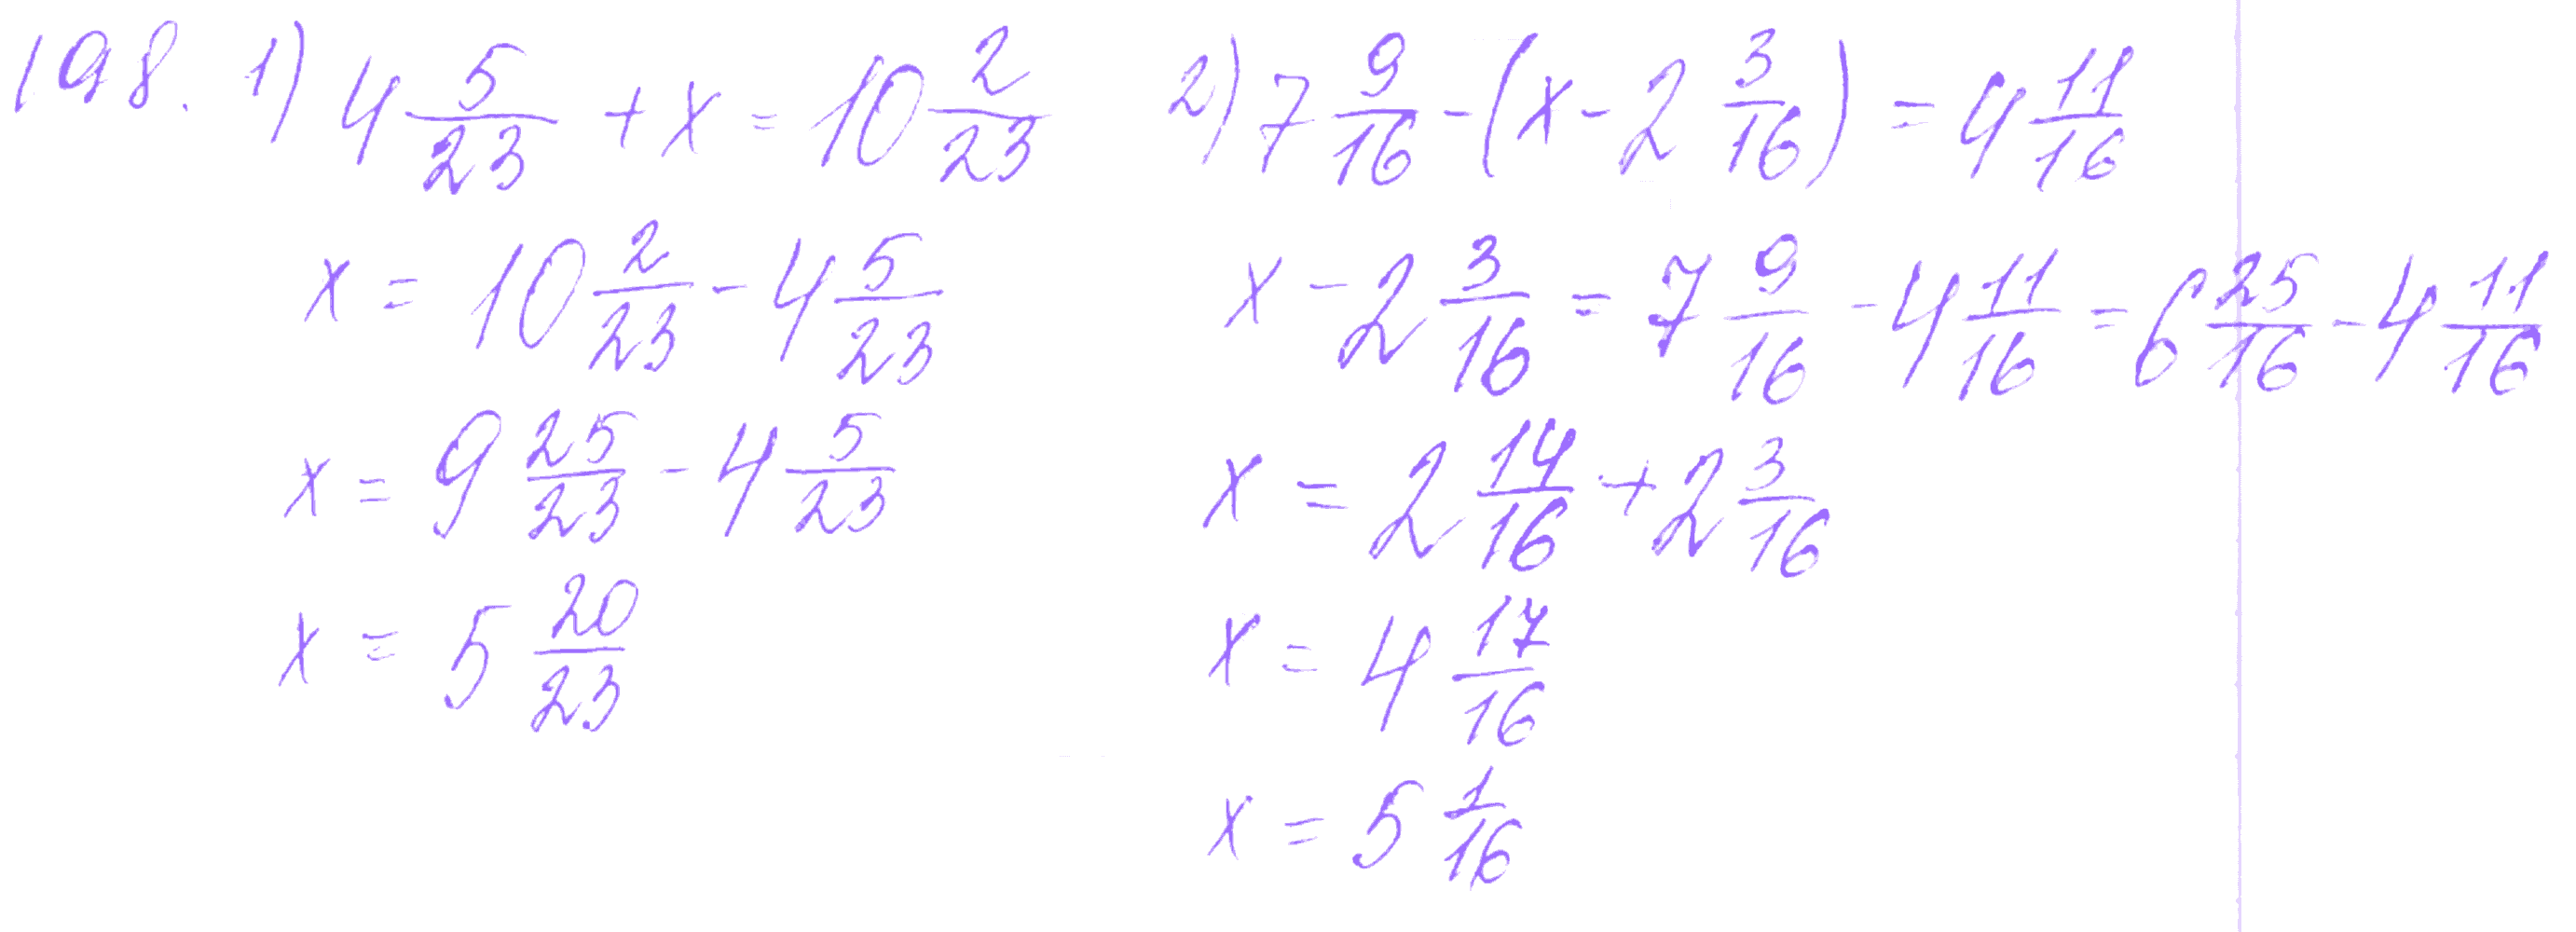 198. 1) 4 5/23 + x = 10 2/23
x = 10 2/23 - 4 5/23
x = 9 25/23 - 4 5/23
x = 5 20/23
2) 7 9/16 - (x - 2 3/16) = 4 11/16
x - 2 3/16 = 7 9/16 - 4 11/16 = 6 25/16 - 4 11/16
x = 2 14/16 + 2 3/16
x = 4 17/16
x = 5 1/16